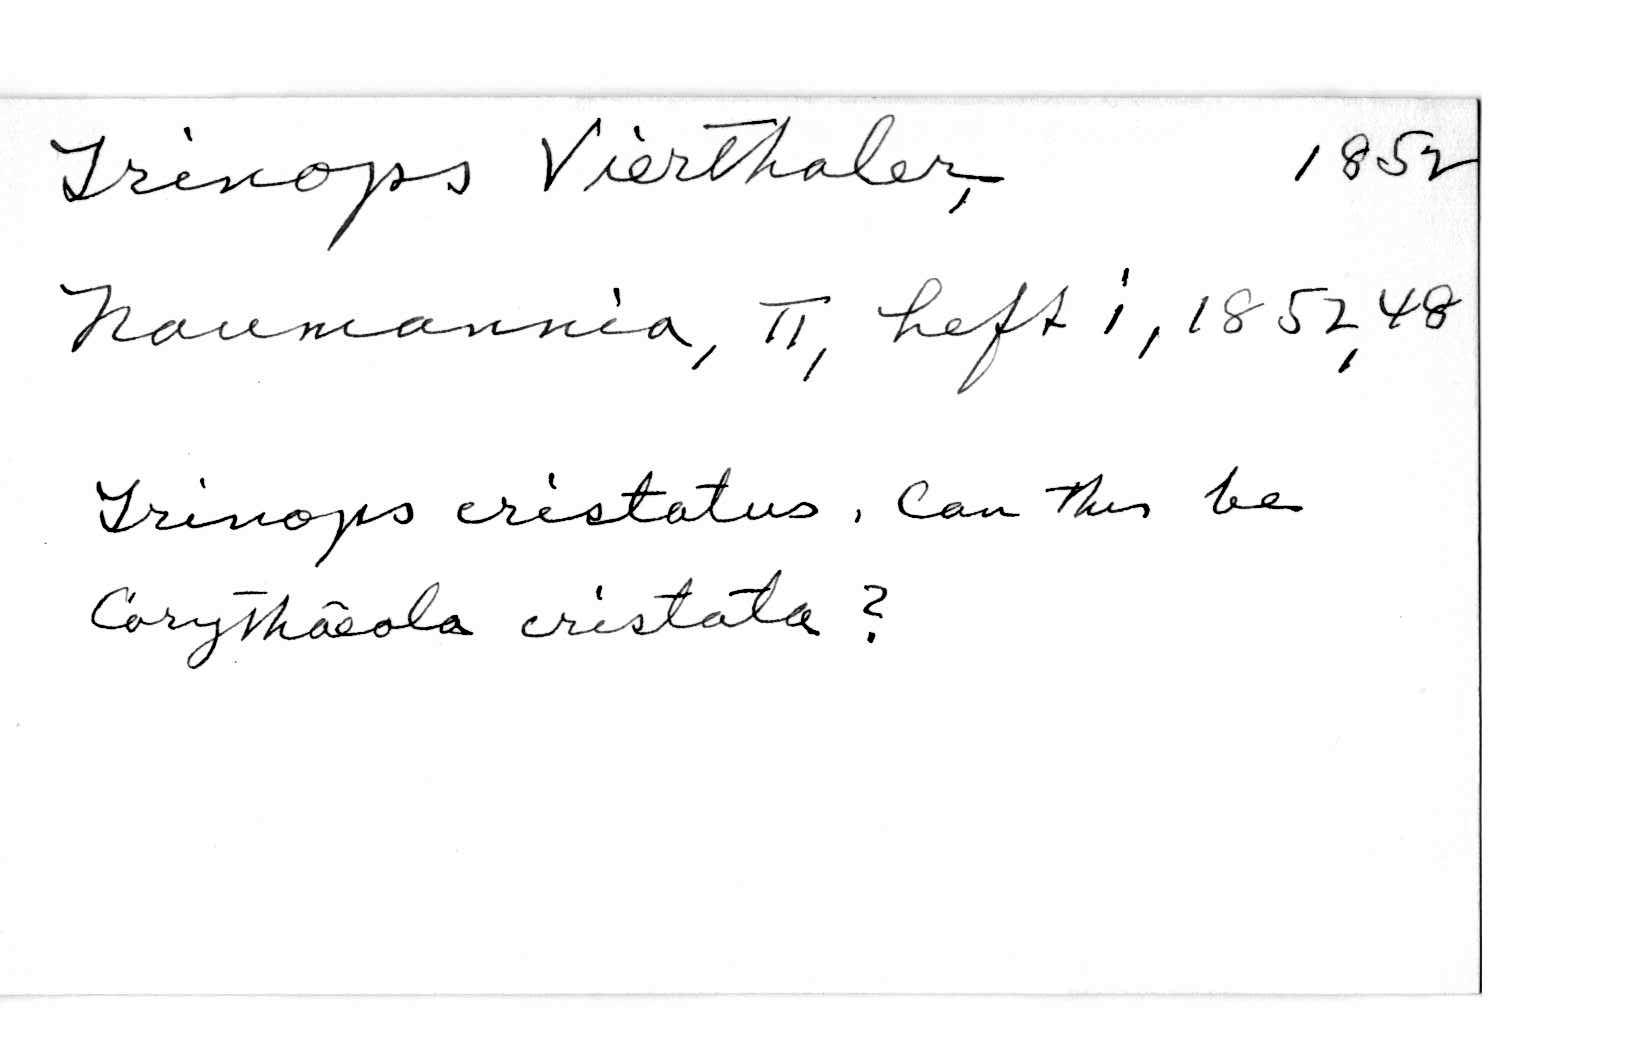 Trinops Vierthaler, 1852
Naumannia, II, heft i, 1852, 48
Trinops cristatus. Can this be
Corythaeola cristata?